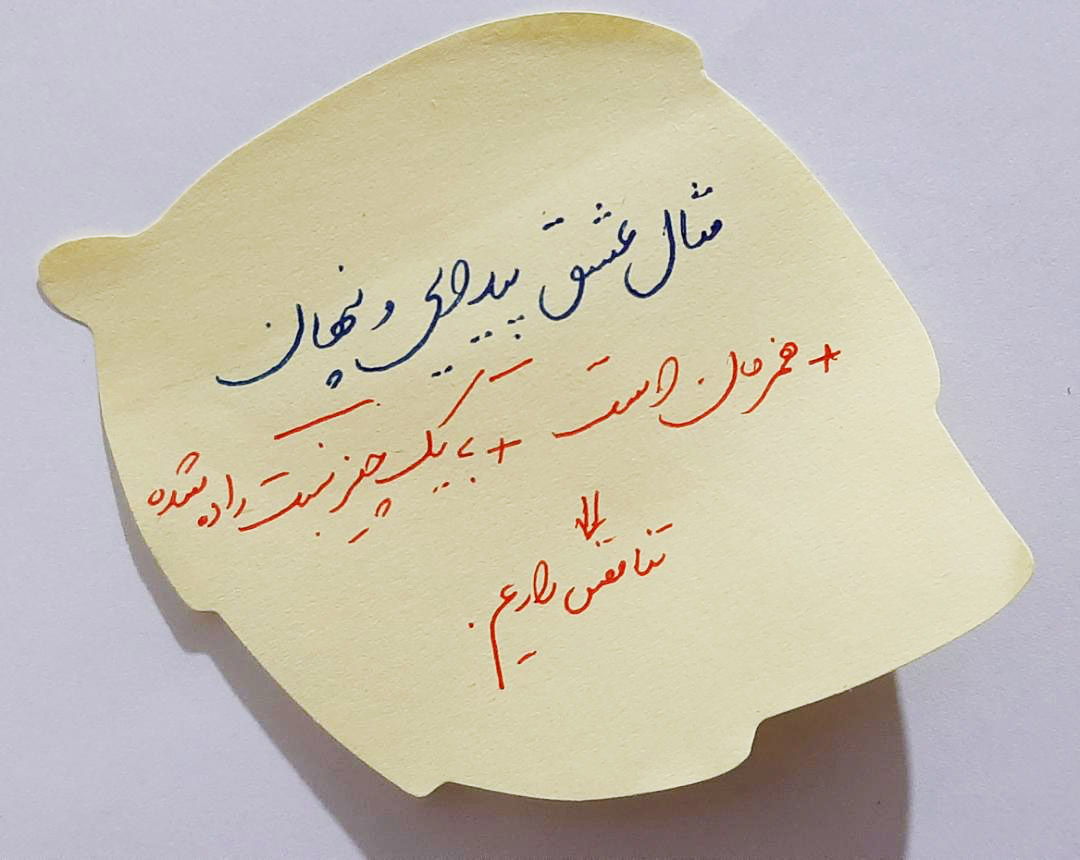 مثال عشق پیدایی و نهان
+ همزمان است + به یک چیز نسبت داده شده
⇓
تناقض داریم.